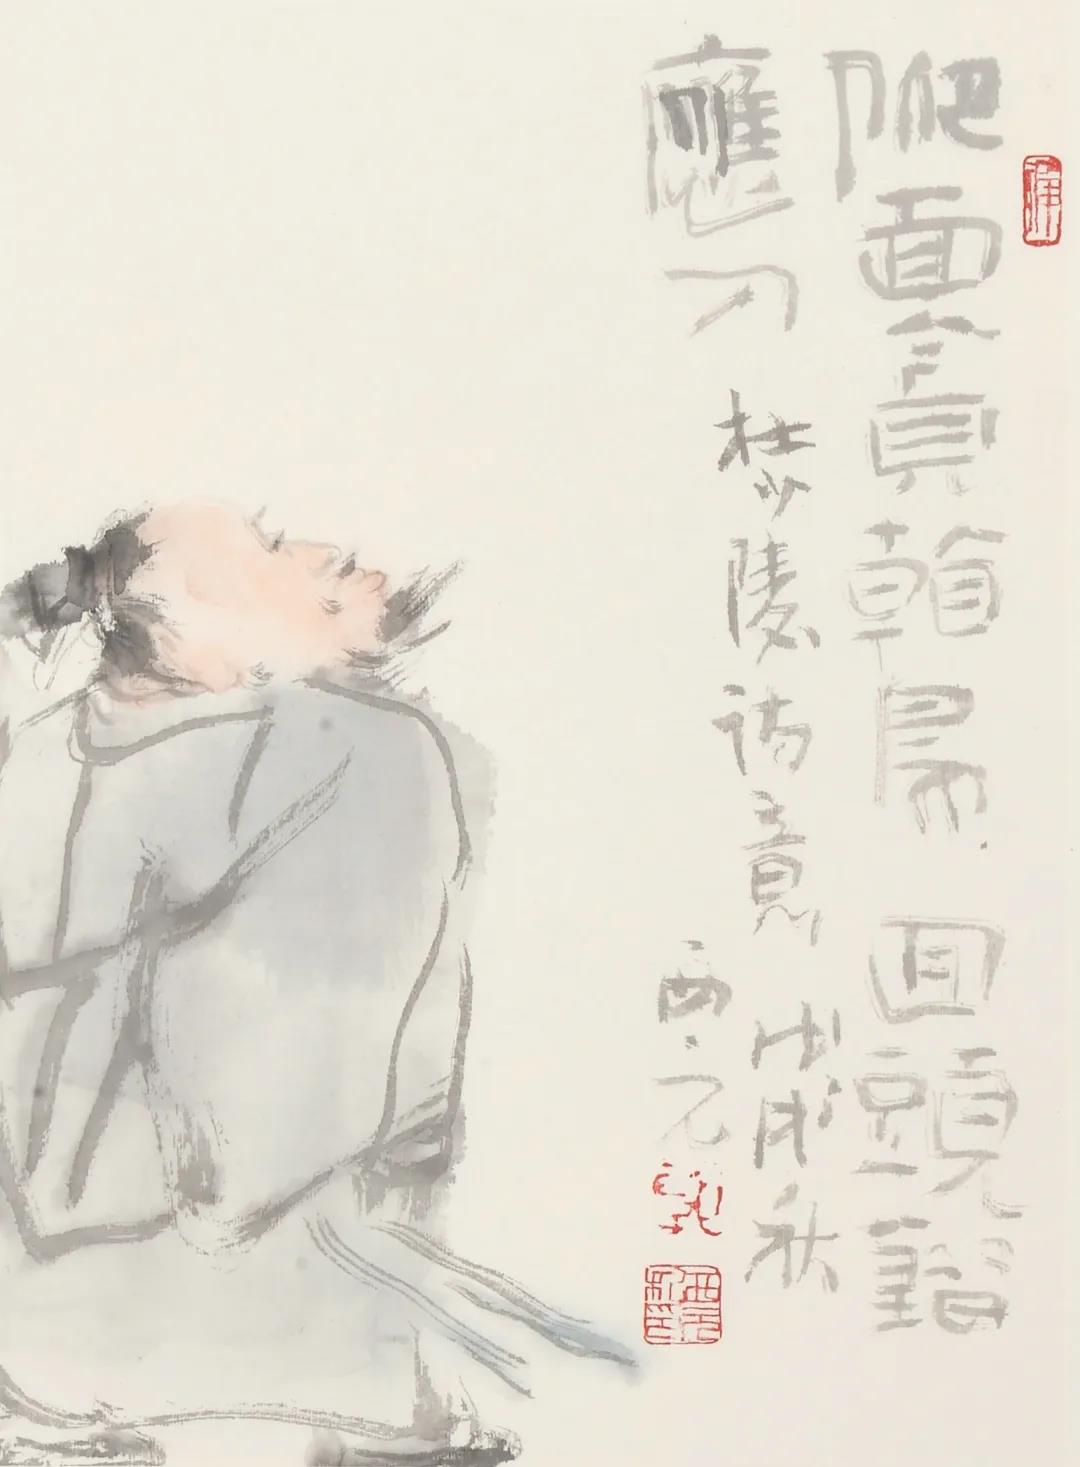 仰面貪看鳥回頭錯
應人杜少陵詩意戊戌秋
西元